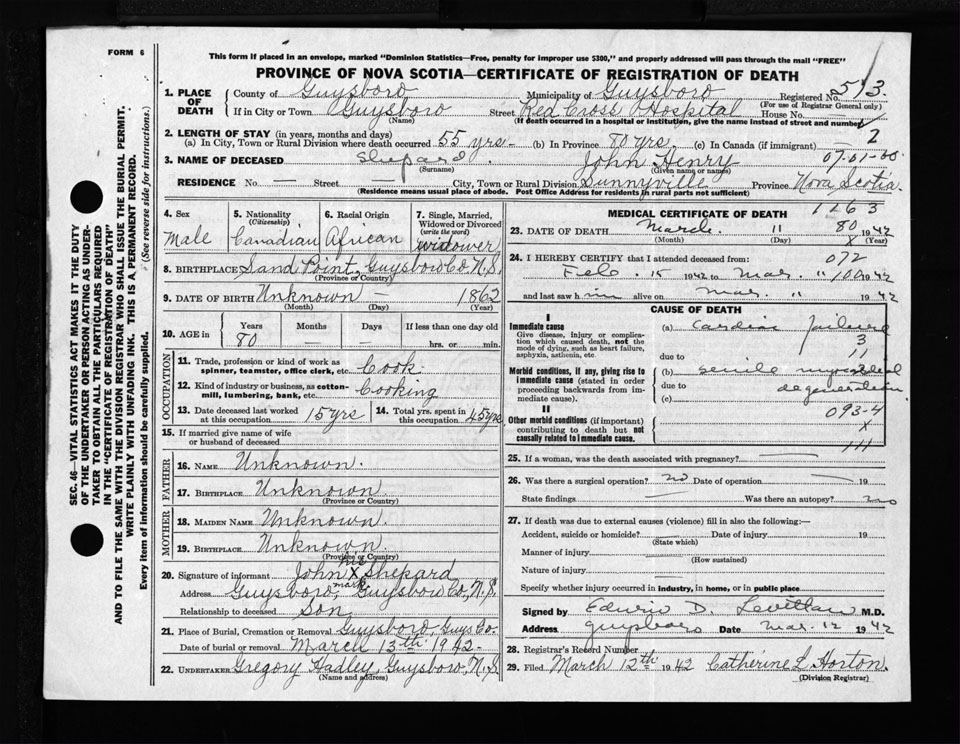 FORM 6
This form if placed in an envelope, marked "Dominion Statistics—Free, penalty for improper use $300," and properly addressed will pass through the mail "FREE"
PROVINCE OF NOVA SCOTIA—CERTIFICATE OF REGISTRATION OF DEATH
SEC. 46—VITAL STATISTICS ACT MAKES IT THE DUTY
OF THE UNDERTAKER OR PERSON ACTING AS UNDER-
TAKER TO OBTAIN ALL THE PARTICULARS REQUIRED
IN THE "CERTIFICATE OF REGISTRATION OF DEATH"
AND TO FILE THE SAME WITH THE DIVISION REGISTRAR WHO SHALL ISSUE THE BURIAL PERMIT.
WRITE PLAINLY WITH UNFADING INK. THIS IS A PERMANENT RECORD.
Every item of information should be carefully supplied. (See reverse side for instructions.)
1. PLACE OF DEATH County of Guysboro Municipality of Guysboro Registered No. 513
(For use of Registrar General only)
If in City or Town Guysboro Street Red Cross Hospital House No. —
(Name) (If death occurred in a hospital or institution, give the name instead of street and number)
2
2. LENGTH OF STAY (in years, months and days)
(a) In City, Town or Rural Division where death occurred 55 yrs- (b) In Province 80 yrs. (c) In Canada (if immigrant)
3. NAME OF DECEASED Shepard. John Henry
(Surname) (Given name or names)
RESIDENCE No — Street — City, Town or Rural Division Sunnyville Province Nova Scotia.
(Residence means usual place of abode. Post Office Address for residents in rural parts not sufficient)
4. Sex Male
5. Nationality (Citizenship) Canadian
6. Racial Origin African
7. Single, Married, Widowed or Divorced (write the word) widower
8. BIRTHPLACE Sand Point, Guysboro Co, N.S.
(Province or Country)
9. DATE OF BIRTH Unknown — 1862
(Month) (Day) (Year)
10. AGE in Years Months Days If less than one day old
80 — — hrs. or min.
OCCUPATION
11. Trade, profession or kind of work as spinner, teamster, office clerk, etc. Cook
12. Kind of industry or business, as cotton-mill, lumbering, bank, etc. Cooking
13. Date deceased last worked at this occupation 15 yrs 14. Total yrs. spent in this occupation 45 yrs
15. If married give name of wife or husband of deceased
FATHER
16. NAME Unknown.
17. BIRTHPLACE Unknown.
(Province or Country)
MOTHER
18. MAIDEN NAME Unknown.
19. BIRTHPLACE Unknown.
(Province or Country)
20. Signature of informant John his X mark Shepard
Address Guysboro, Guysboro Co, N.S.
Relationship to deceased Son
21. Place of Burial, Cremation or Removal Guysboro, Guys Co.
Date of burial or removal March 13th 1942-
22. UNDERTAKER Gregory Hadley, Guysboro, N.S
(Name and address)
MEDICAL CERTIFICATE OF DEATH 1263
23. DATE OF DEATH March 11 80 1942
(Month) (Day) X (Year)
24. I HEREBY CERTIFY that I attended deceased from: 072
Feb. 15 1942 to Mar. 11 1942
and last saw him alive on Mar. 11 1942
CAUSE OF DEATH
I
Immediate cause
Give disease, injury or complication which caused death, not the mode of dying, such as heart failure, asphyxia, asthenia, etc.
(a) Cardiac failure
3
11
due to
Morbid conditions, if any, giving rise to immediate cause (stated in order proceeding backwards from immediate cause).
(b) senile myocardial
due to degeneration
(c)
093-4
II
X
Other morbid conditions (if important) contributing to death but not causally related to Immediate cause.
111
25. If a woman, was the death associated with pregnancy? —
26. Was there a surgical operation? no Date of operation 19
State findings — Was there an autopsy? no
27. If death was due to external causes (violence) fill in also the following:—
Accident, suicide or homicide? Date of injury 19
(State which)
Manner of injury
(How sustained)
Nature of injury
Specify whether injury occurred in industry, in home, or in public place
Signed by Edwin D. M.D.
Address guysboro Date Mar. 12 1942
28. Registrar's Record Number
29. Filed March 12th 1942 Catherine L Horton
(Division Registrar)